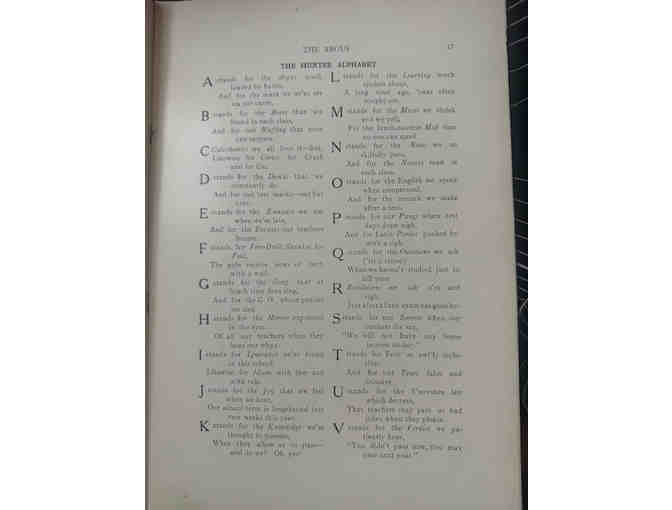 THE ARGUS
17
THE HUNTER ALPHABET
A stands for the Argus small,
loaned by
And for the mark we
on our
B stands for the Boast that we
found in each class,
And for our that none
can surpass.
C we all love it—
Likewise for Cover, for Crush
and for Cut.
D stands for the Dental that we
constantly do.
And for our test marks—not but
E stands for the Excuses we use
when we're late,
And for the our teachers
F stands for
The girls receive news of each
with a wail.
G stands for the Gong that at
lunch time does ring,
And for the G. O. whose praises
we sing.
H stands for the Horror expressed
in the eyes
Of all our teachers when they
hear our whys.
I stands for Ignorance we've found
in this school;
Likewise for Idiom with law and
with rule.
J stands for the Joy that we feel
when we hear,
Our school term is lengthened just
two weeks this year.
K stands for the Knowledge we're
thought to possess,
When they allow us to pass—
and do we? Oh, yes!
L stands for the Learning much
spoken about,
A long time ago, 'twas often
sought out.
M stands for the Music we shriek
and we yell,
For the Mob that
no one can quell.
N stands for the Note we so
skilfully pass,
And for the Noises used in
each class.
O stands for the English we speak
when
And for the remark we make
after a test.
P stands for our Pangs when test
days draw nigh,
And for Latin Ponies guarded by
with a sigh.
Q stands for the Questions we ask
('tis a crime)
When we haven't studied, just to
kill time.
R Resolutions we make o'er and
sigh,
Just after a Latin exam has gone by.
S stands for our Sorrow when our
teachers do say,
"We will not have any home
lessons to-day."
T stands for Tests so awf'ly
And for our Tears false and
U stands for the Unwritten law
which decrees,
That teachers may pass us bad
jokes when they please.
V stands for the Verdict we pa-
tiently hear,
"You didn't pass now, you may
pass next year."